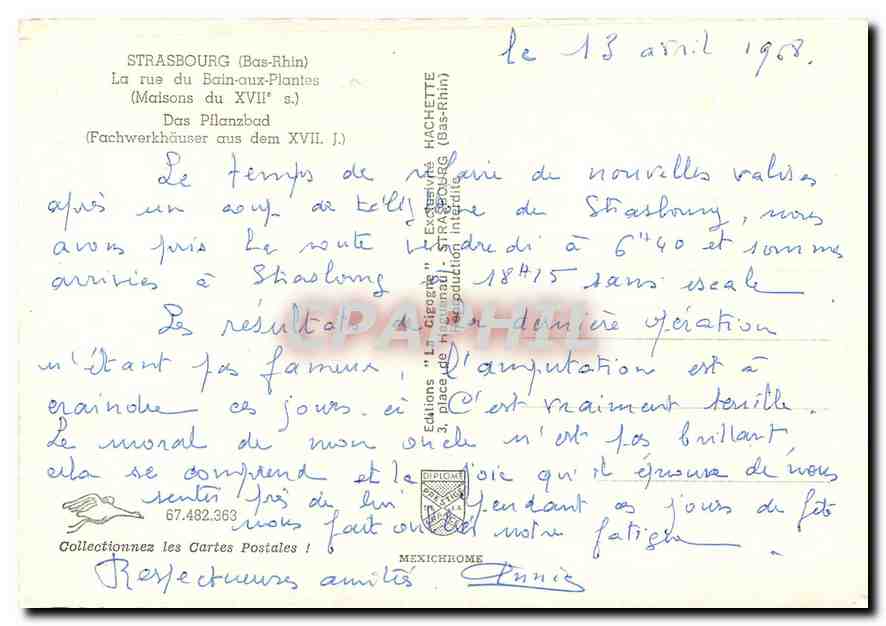 le 13 avril 1968.
STRASBOURG (Bas-Rhin)
La rue du Bain-aux-Plantes
(Maisons du XVIIe s.)
Das Pflanzbad
(Fachwerkhäuser aus dem XVII. J.)
Le temps de refaire de nouvelles valises
après un coup de téléphone de Strasbourg, nous
avons pris la route vendredi à 6H40 et sommes
arrivées à Strasbourg à 18H15 sans escale.
Les résultats de la dernière opération
n'étant pas fameux, l'amputation est à
craindre ces jours-ci C'est vraiment terrible.
Le moral de mon oncle n'est pas brillant
cela se comprend et la joie qu'il éprouve de nous
sentir près de lui pendant ces jours de fête
nous fait oublier notre fatigue.
Respectueuses amitiés. Annie
Editions "La Cigogne" Exclusivité HACHETTE
3, place de Haguenau - STRASBOURG (Bas-Rhin)
Reproduction interdite
CPAPHIL
DIPLOME
PRESTIGE
67.482.363
Collectionnez les Cartes Postales !
MEXICHROME